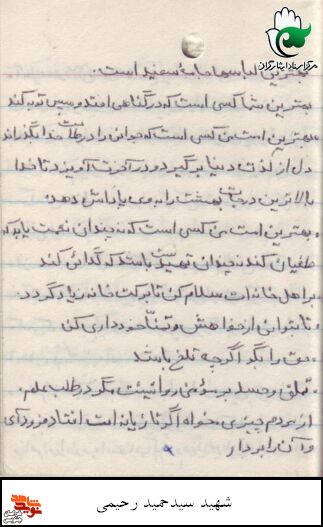 مرکز اسناد ایثارگران
بهترین لباسها جامهٔ سفید است.
بهترین شما کسی است که در گناهی افتد و سپس توبه کند
بهترین امت من کسی است که جوانی را در طاعت خدا بگذراند
دل از لذت دنیا برگیرد و در آخرت آویزد تا خدا
بالاترین درجات بهشت را به وی پاداش دهد.
بهترین امت من کسی است که نه چندان نعمت یابد که
طغیان کند نه چندان تهیدست باشد که گدائی کند
بر اهل خانه ات سلام کن تا برکت خانه زیاد گردد.
تا بتوانی از خواهش و تمنا خودداری کن
حق را بگو اگر چه تلخ باشد
تملق و حسد بر مؤمن روا نیست مگر در طلب علم.
از مردم چیزی مخواه اگر تازیانه ات افتاد فرود آی
و آن را بردار
شهید سید حمید رحیمی